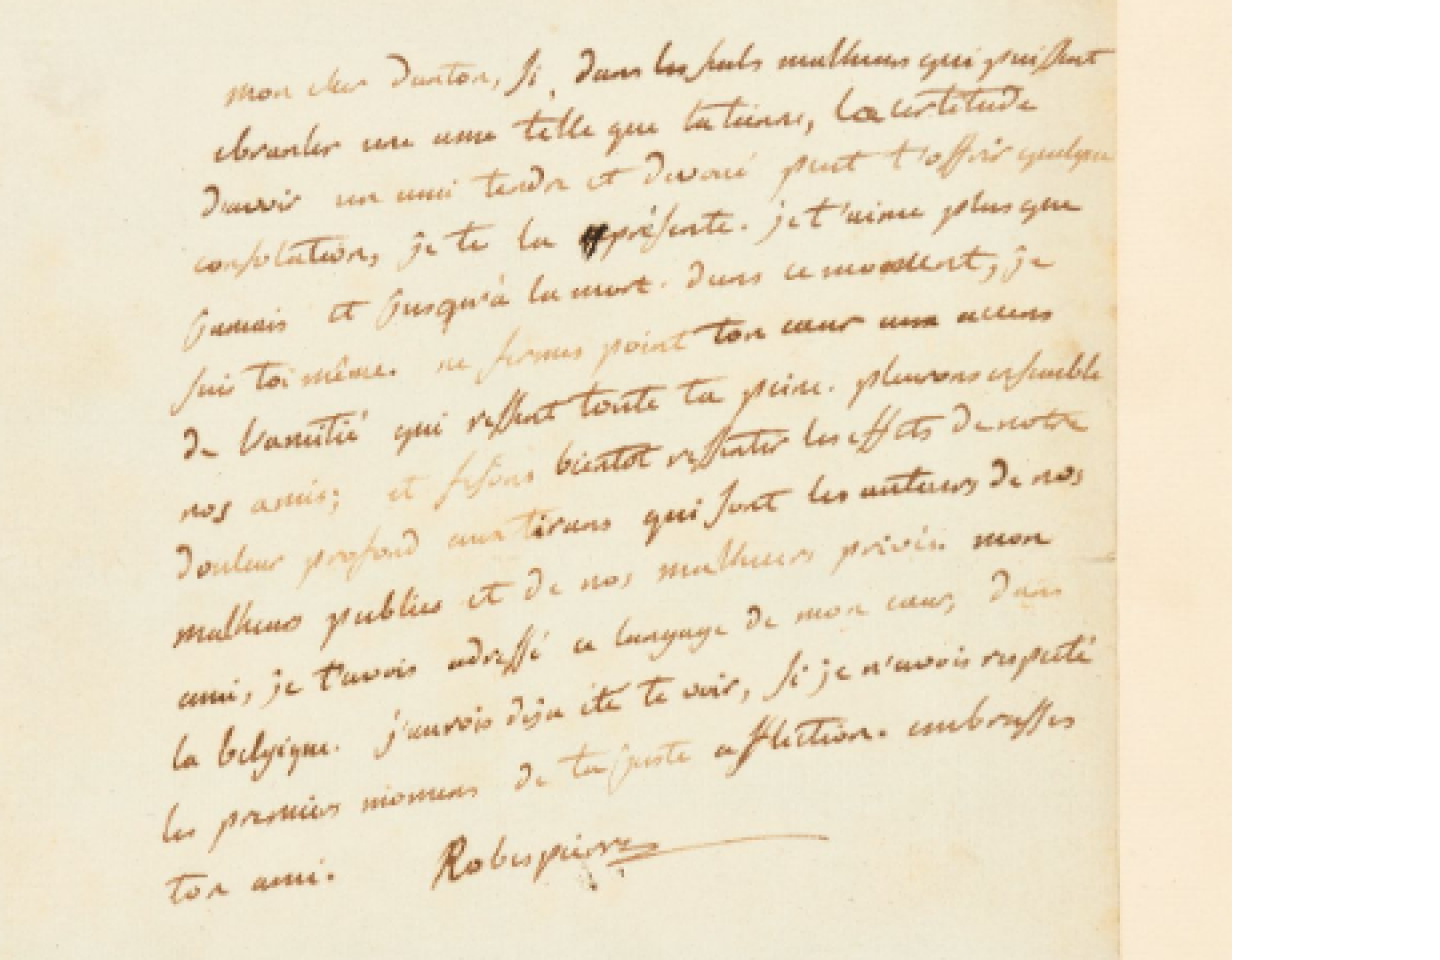 mon cher danton, si, dans les seuls malheurs qui puissent
ebranler une ame telle que la tienne, la certitude
d'avoir un ami tendre et devoué peut t'offrir quelque
consolation, je te la présente. je t'aime plus que
jamais et jusqu'à la mort. dans ce moment, je
suis toi même. ne fermes point ton cœur aux accens
de l'amitié qui ressent toute ta peine. pleurons ensemble
nos amis; et fesons bientot ressentir les effets de notre
douleur profond aux tirans qui sont les auteurs de nos
malheurs publics et de nos malheurs privés. mon
ami, je t'avois adressé ce langage de mon cœur, dans
la belgique. j'aurois deja été te voir, si je n'avois respecté
les premiers momens de ta juste affliction. embrasses
ton ami. Robespierre